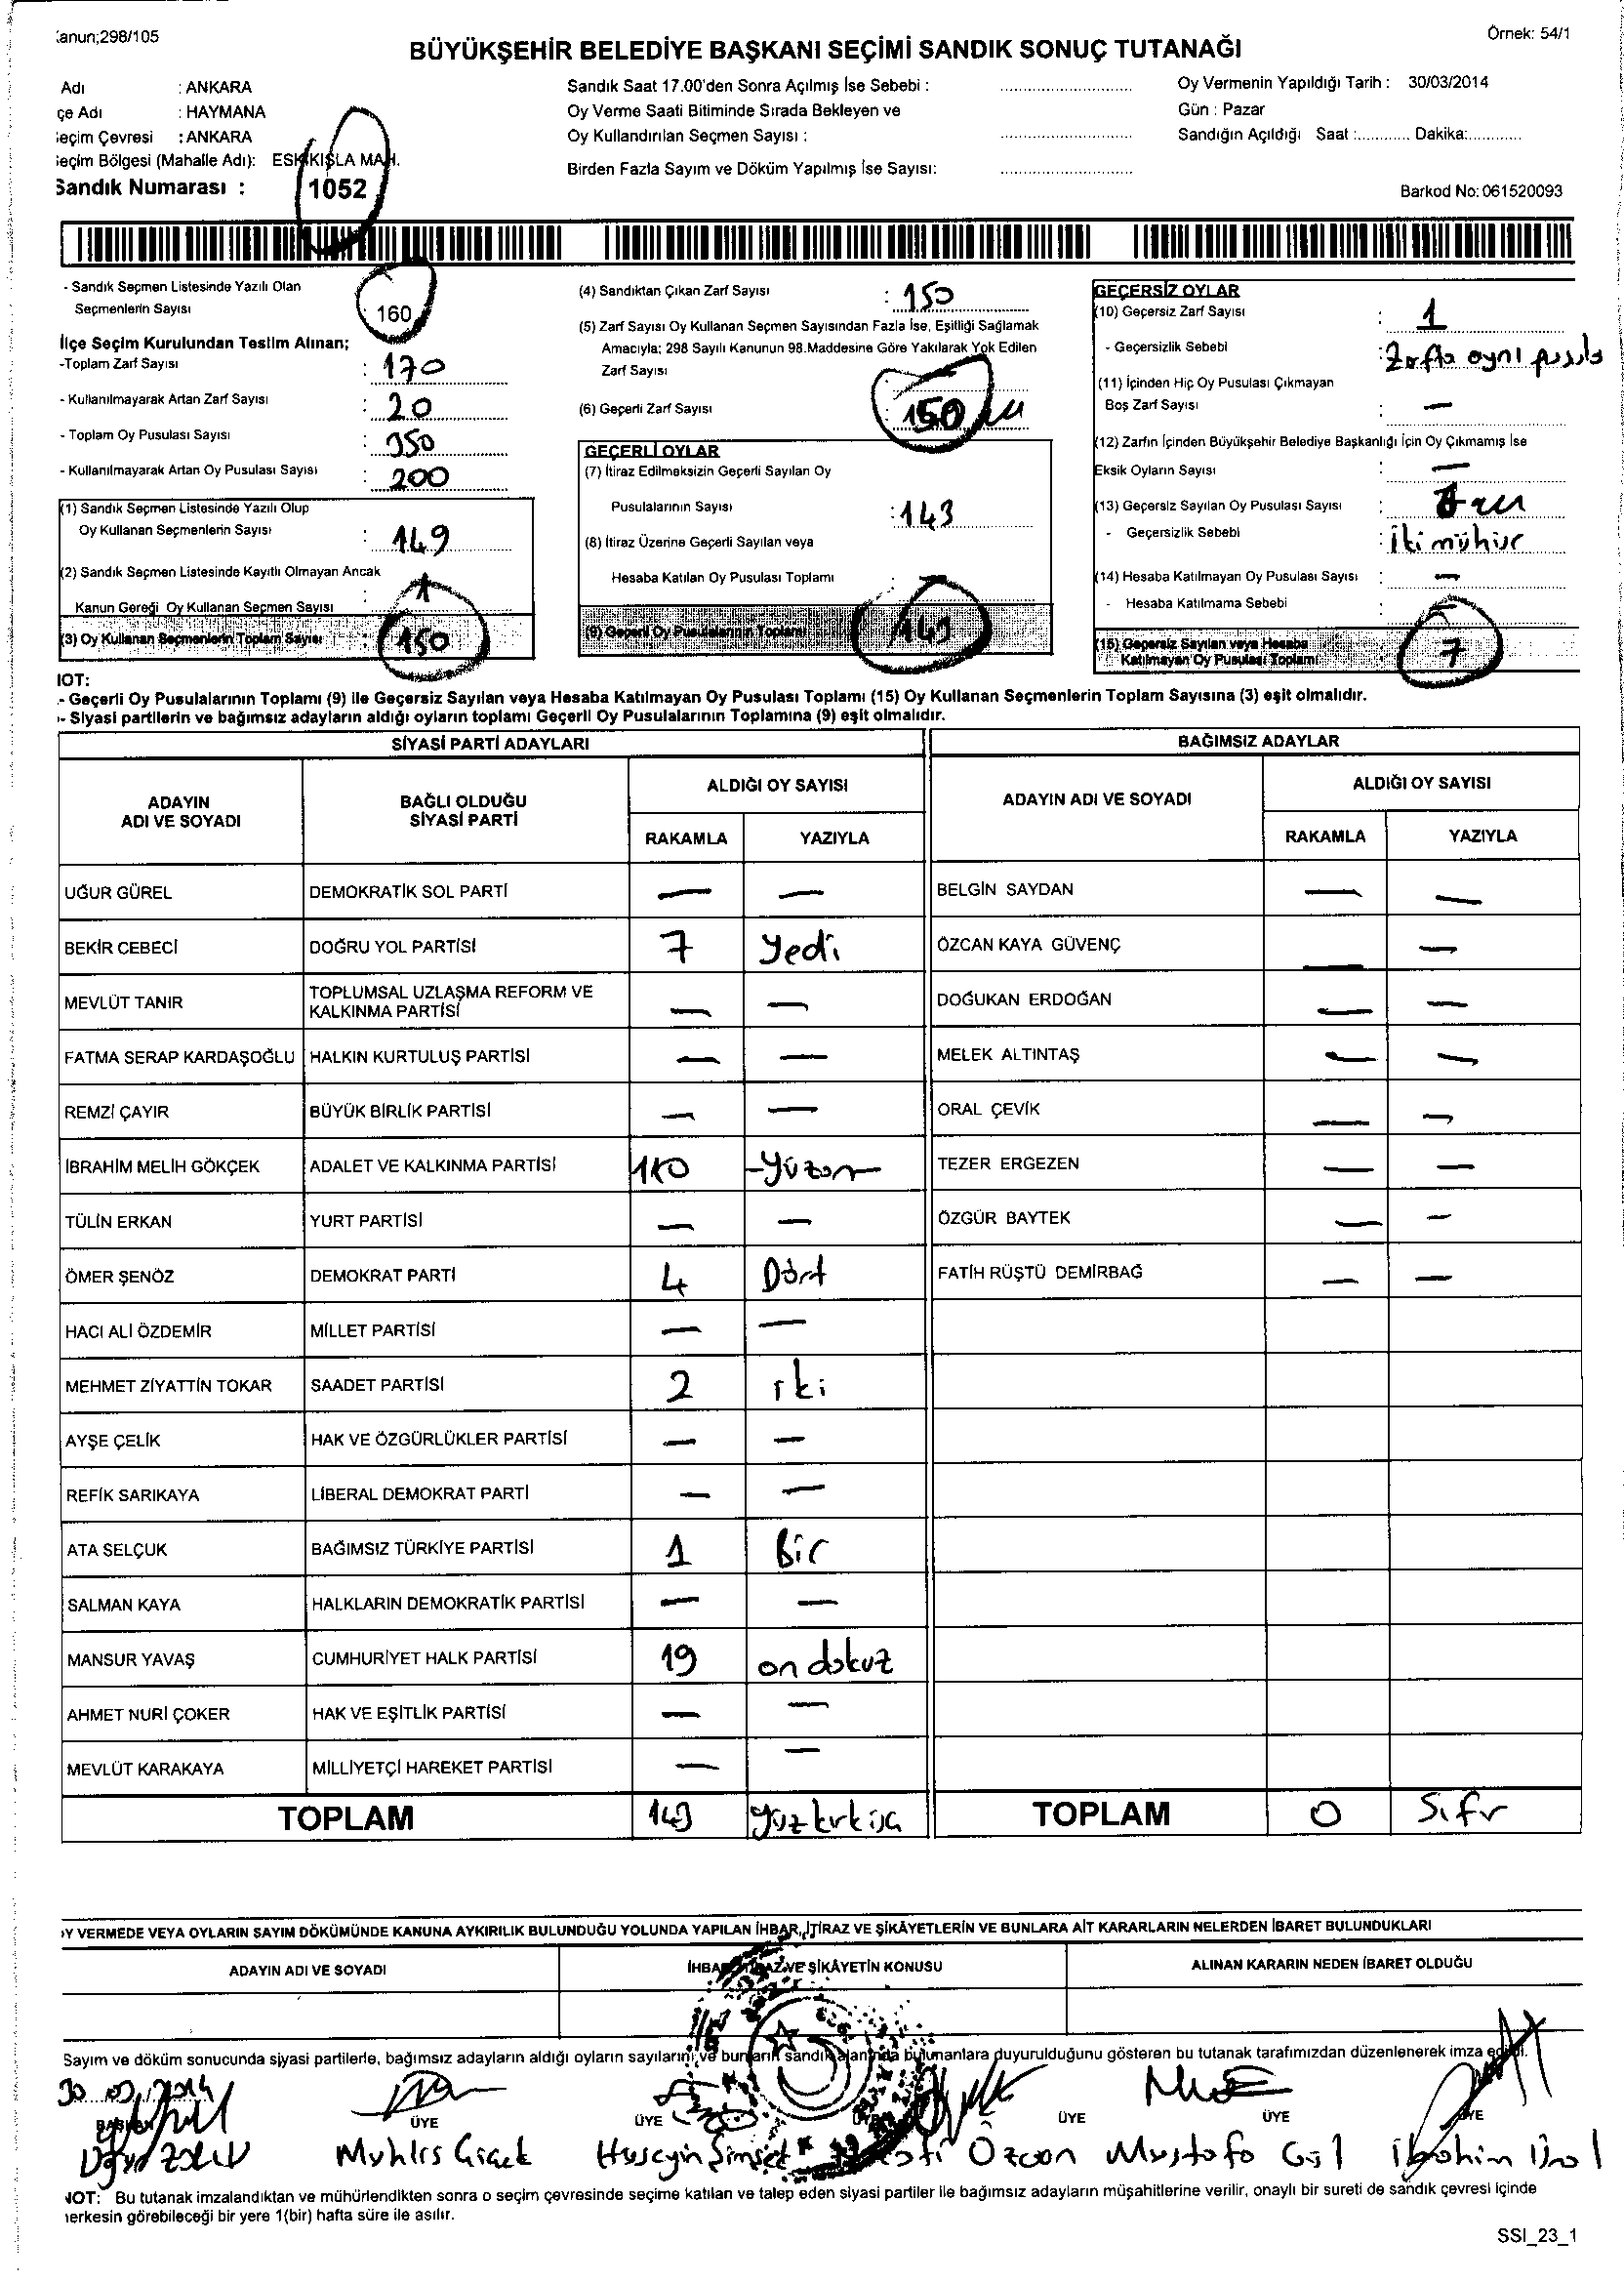 Kanun;298/105
Örnek: 54/1
BÜYÜKŞEHİR BELEDİYE BAŞKANI SEÇİMİ SANDIK SONUÇ TUTANAĞI
Adı : ANKARA
çe Adı : HAYMANA
eçim Çevresi : ANKARA
eçim Bölgesi (Mahalle Adı): ESKİKIŞLA MAH.
Sandık Numarası : 1052
Sandık Saat 17.00'den Sonra Açılmış İse Sebebi :
Oy Verme Saati Bitiminde Sırada Bekleyen ve
Oy Kullandırılan Seçmen Sayısı :
Birden Fazla Sayım ve Döküm Yapılmış İse Sayısı:
Oy Vermenin Yapıldığı Tarih : 30/03/2014
Gün : Pazar
Sandığın Açıldığı Saat :............ Dakika:............
Barkod No: 061520093
- Sandık Seçmen Listesinde Yazılı Olan
Seçmenlerin Sayısı 160
İlçe Seçim Kurulundan Teslim Alınan;
-Toplam Zarf Sayısı : 170
- Kullanılmayarak Artan Zarf Sayısı : 20
- Toplam Oy Pusulası Sayısı : 350
- Kullanılmayarak Artan Oy Pusulası Sayısı : 200
(1) Sandık Seçmen Listesinde Yazılı Olup
Oy Kullanan Seçmenlerin Sayısı : 149
(2) Sandık Seçmen Listesinde Kayıtlı Olmayan Ancak
Kanun Gereği Oy Kullanan Seçmen Sayısı : 1
(3) Oy Kullanan Seçmenlerin Toplam Sayısı : 150
(4) Sandıktan Çıkan Zarf Sayısı : 150
(5) Zarf Sayısı Oy Kullanan Seçmen Sayısından Fazla İse, Eşitliği Sağlamak
Amacıyla; 298 Sayılı Kanunun 98.Maddesine Göre Yakılarak Yok Edilen
Zarf Sayısı
(6) Geçerli Zarf Sayısı : 150
GEÇERLİ OYLAR
(7) İtiraz Edilmeksizin Geçerli Sayılan Oy
Pusulalarının Sayısı : 143
(8) İtiraz Üzerine Geçerli Sayılan veya
Hesaba Katılan Oy Pusulası Toplamı : —
(9) Geçerli Oy Pusulalarının Toplamı 143
GEÇERSİZ OYLAR
(10) Geçersiz Zarf Sayısı : 1
- Geçersizlik Sebebi : Zarfta aynı pusula
(11) İçinden Hiç Oy Pusulası Çıkmayan
Boş Zarf Sayısı : —
(12) Zarfın İçinden Büyükşehir Belediye Başkanlığı İçin Oy Çıkmamış İse
Eksik Oyların Sayısı : —
(13) Geçersiz Sayılan Oy Pusulası Sayısı :
- Geçersizlik Sebebi : iki mühür
(14) Hesaba Katılmayan Oy Pusulası Sayısı : —
- Hesaba Katılmama Sebebi : —
(15) Geçersiz Sayılan veya Hesaba
Katılmayan Oy Pusulası Toplamı 7
NOT:
- Geçerli Oy Pusulalarının Toplamı (9) ile Geçersiz Sayılan veya Hesaba Katılmayan Oy Pusulası Toplamı (15) Oy Kullanan Seçmenlerin Toplam Sayısına (3) eşit olmalıdır.
- Siyasi partilerin ve bağımsız adayların aldığı oyların toplamı Geçerli Oy Pusulalarının Toplamına (9) eşit olmalıdır.
SİYASİ PARTİ ADAYLARI
ADAYIN ADI VE SOYADI
BAĞLI OLDUĞU SİYASİ PARTİ
ALDIĞI OY SAYISI
RAKAMLA YAZIYLA
UĞUR GÜREL DEMOKRATİK SOL PARTİ — —
BEKİR CEBECİ DOĞRU YOL PARTİSİ 7 Yedi
MEVLÜT TANIR TOPLUMSAL UZLAŞMA REFORM VE KALKINMA PARTİSİ — —
FATMA SERAP KARDAŞOĞLU HALKIN KURTULUŞ PARTİSİ — —
REMZİ ÇAYIR BÜYÜK BİRLİK PARTİSİ — —
İBRAHİM MELİH GÖKÇEK ADALET VE KALKINMA PARTİSİ 110 Yüzon
TÜLİN ERKAN YURT PARTİSİ — —
ÖMER ŞENÖZ DEMOKRAT PARTİ 4 Dört
HACI ALİ ÖZDEMİR MİLLET PARTİSİ — —
MEHMET ZİYATTİN TOKAR SAADET PARTİSİ 2 iki
AYŞE ÇELİK HAK VE ÖZGÜRLÜKLER PARTİSİ — —
REFİK SARIKAYA LİBERAL DEMOKRAT PARTİ — —
ATA SELÇUK BAĞIMSIZ TÜRKİYE PARTİSİ 1 Bir
SALMAN KAYA HALKLARIN DEMOKRATİK PARTİSİ — —
MANSUR YAVAŞ CUMHURİYET HALK PARTİSİ 19 on dokuz
AHMET NURİ ÇOKER HAK VE EŞİTLİK PARTİSİ — —
MEVLÜT KARAKAYA MİLLİYETÇİ HAREKET PARTİSİ — —
TOPLAM 143 yüzkırküç
BAĞIMSIZ ADAYLAR
ADAYIN ADI VE SOYADI
ALDIĞI OY SAYISI
RAKAMLA YAZIYLA
BELGİN SAYDAN — —
ÖZCAN KAYA GÜVENÇ — —
DOĞUKAN ERDOĞAN — —
MELEK ALTINTAŞ — —
ORAL ÇEVİK — —
TEZER ERGEZEN — —
ÖZGÜR BAYTEK — —
FATİH RÜŞTÜ DEMİRBAĞ — —
TOPLAM 0 Sıfır
OY VERMEDE VEYA OYLARIN SAYIM DÖKÜMÜNDE KANUNA AYKIRILIK BULUNDUĞU YOLUNDA YAPILAN İHBAR, İTİRAZ VE ŞİKÂYETLERİN VE BUNLARA AİT KARARLARIN NELERDEN İBARET BULUNDUKLARI
ADAYIN ADI VE SOYADI
İHBAR, İTİRAZ VE ŞİKÂYETİN KONUSU
ALINAN KARARIN NEDEN İBARET OLDUĞU
Sayım ve döküm sonucunda siyasi partilerle, bağımsız adayların aldığı oyların sayılarını ve bunların sandık alanında bulunanlara duyurulduğunu gösteren bu tutanak tarafımızdan düzenlenerek imza edildi.
30.03.2014
BAŞKAN ÜYE ÜYE ÜYE ÜYE ÜYE ÜYE
Muhlis Hüseyin Şimşek Özcan Mustafa Gül İbrahim
NOT: Bu tutanak imzalandıktan ve mühürlendikten sonra o seçim çevresinde seçime katılan ve talep eden siyasi partiler ile bağımsız adayların müşahitlerine verilir, onaylı bir sureti de sandık çevresi içinde
herkesin görebileceği bir yere 1(bir) hafta süre ile asılır.
SSI_23_1